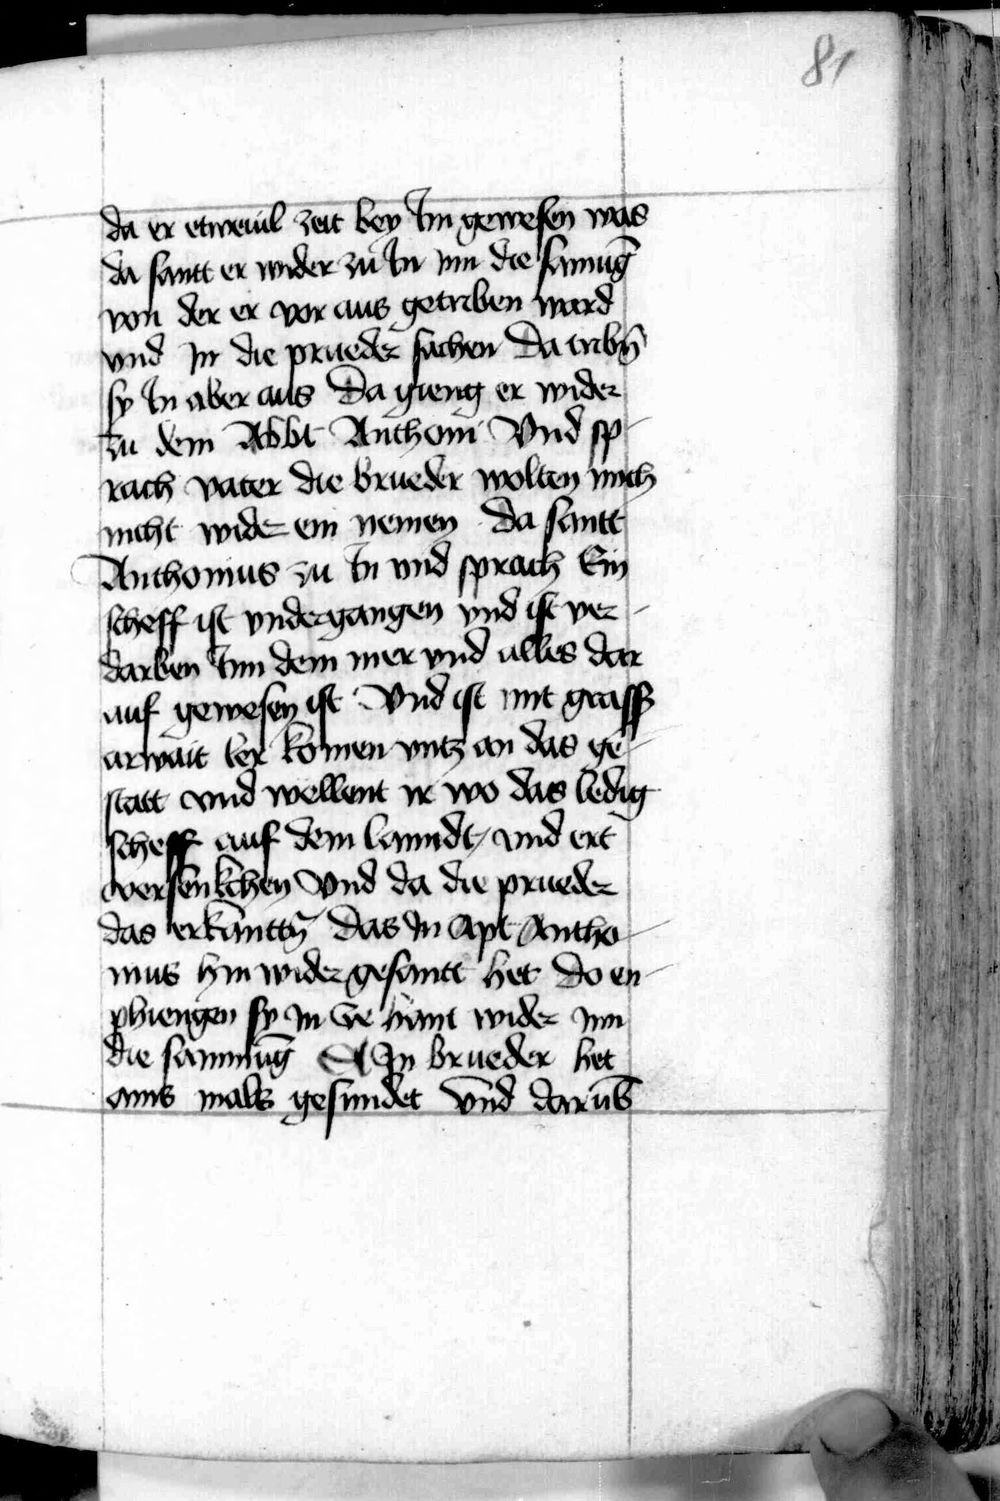 81
da er etweuil zeit bey Im gewesen was
da santt er wider zu In inn die samūg
von der er vor aus getriben ward
vnd In die prueder sachen Da tribn̄
sy In aber aus Da gieng er wider
zu dem Abbt Anthoni Vnd sp-
rach vater die brueder wolten mich
nicht wider ein nemen Da santt
Anthonius zu In vnd sprach Ein
scheff ist vndergangen vnd ist ver-
darben Inn dem mer vnd alles dar
auf gewesen ist Vnd ist mit grass
arwait ler komen vntz an das ge-
statt vnd wellent ir wo das ledig
scheff auf dem lanndt vnd ert
versenkchen Vnd da die prueder
das erkāntn̄ das In Apt Antho-
nius hin wider gesantt het Do en-
phiengen sy In ze hant wider Inn
die sammūg Ain brueder het
ains mals gesundet vnd darūb